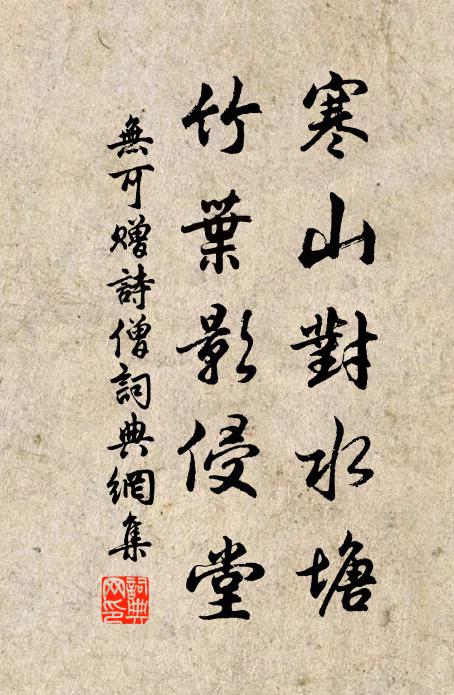 寒山對水塘
竹葉影侵堂
無可贈詩僧詞典網集
詞典網印